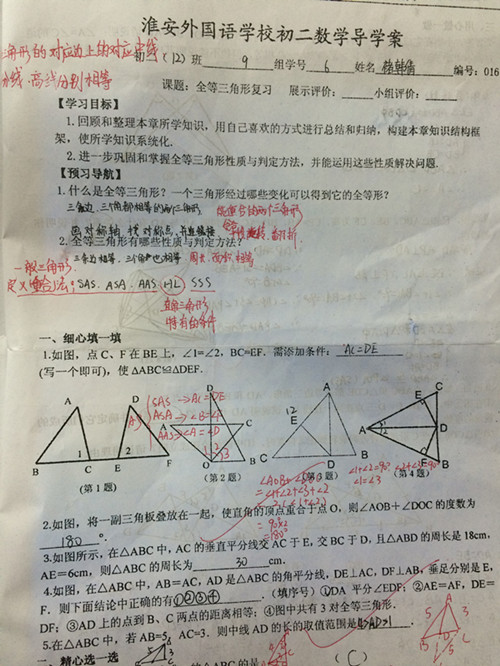 淮安外国语学校初二数学导学案
角形的对应边上的对应中线
分线、高线分别相等
(12)班 9 组学号 6 姓名 编号：016
课题：全等三角形复习 展示评价： 小组评价：
【学习目标】
1.回顾和整理本章所学知识，用自己喜欢的方式进行总结和归纳，构建本章知识结构框
架，使所学知识系统化.
2.进一步巩固和掌握全等三角形性质与判定方法，并能运用这些性质解决问题.
【预习导航】
1.什么是全等三角形？一个三角形经过哪些变化可以得到它的全等形？
三条边、三个角都相等的两个三角形 能重合的两个三角形
画对称轴 找对称点，并且连接 翻折
2.全等三角形有哪些性质与判定方法？
三条边相等，三个角也相等 周长、面积相等
一般三角形
定义(重合)法；SAS、ASA、AAS、HL SSS
直角三角形
特有的条件
一、细心填一填
1.如图，点 C、F 在 BE 上，∠1=∠2，BC=EF. 需添加条件： AC=DE
(写一个即可)，使 ΔABC≌ΔDEF.
SAS → AC=DE
ASA → ∠B=∠E
AAS → ∠A=∠D
A D B 1 C E 2 F
(第 1 题)
D A C O B
(第 2 题)
A E 12 B D C
(第 3 题)
C E A D F B
(第 4 题)
=∠1+∠2+∠3+∠2
=90×2
=180°
∠1+∠2=90° ∠2+∠3=90°
∠1=∠3
2.如图，将一副三角板叠放在一起，使直角的顶点重合于点 O，则∠AOB+∠DOC 的度数为
180 °.
3.如图所示，在△ABC 中，AC 的垂直平分线交 AC 于 E，交 BC 于 D，且△ABD 的周长是 18cm，
AE=6cm，则△ABC 的周长为 30 cm.
4.如图，在△ABC 中，AB=AC，AD 是△ABC 的角平分线，DE⊥AC，DF⊥AB，垂足分别是 E，
F．则下面结论中正确的有①②③④．(填序号) ①DA 平分∠EDF；②AE=AF，DE=
DF；③AD 上的点到 B、C 两点的距离相等；④图中共有 3 对全等三角形.
5.在△ABC 中，若 AB=5，AC=3．则中线 AD 的长的取值范围是 4>AD>1．
二、精心选一选
(C)